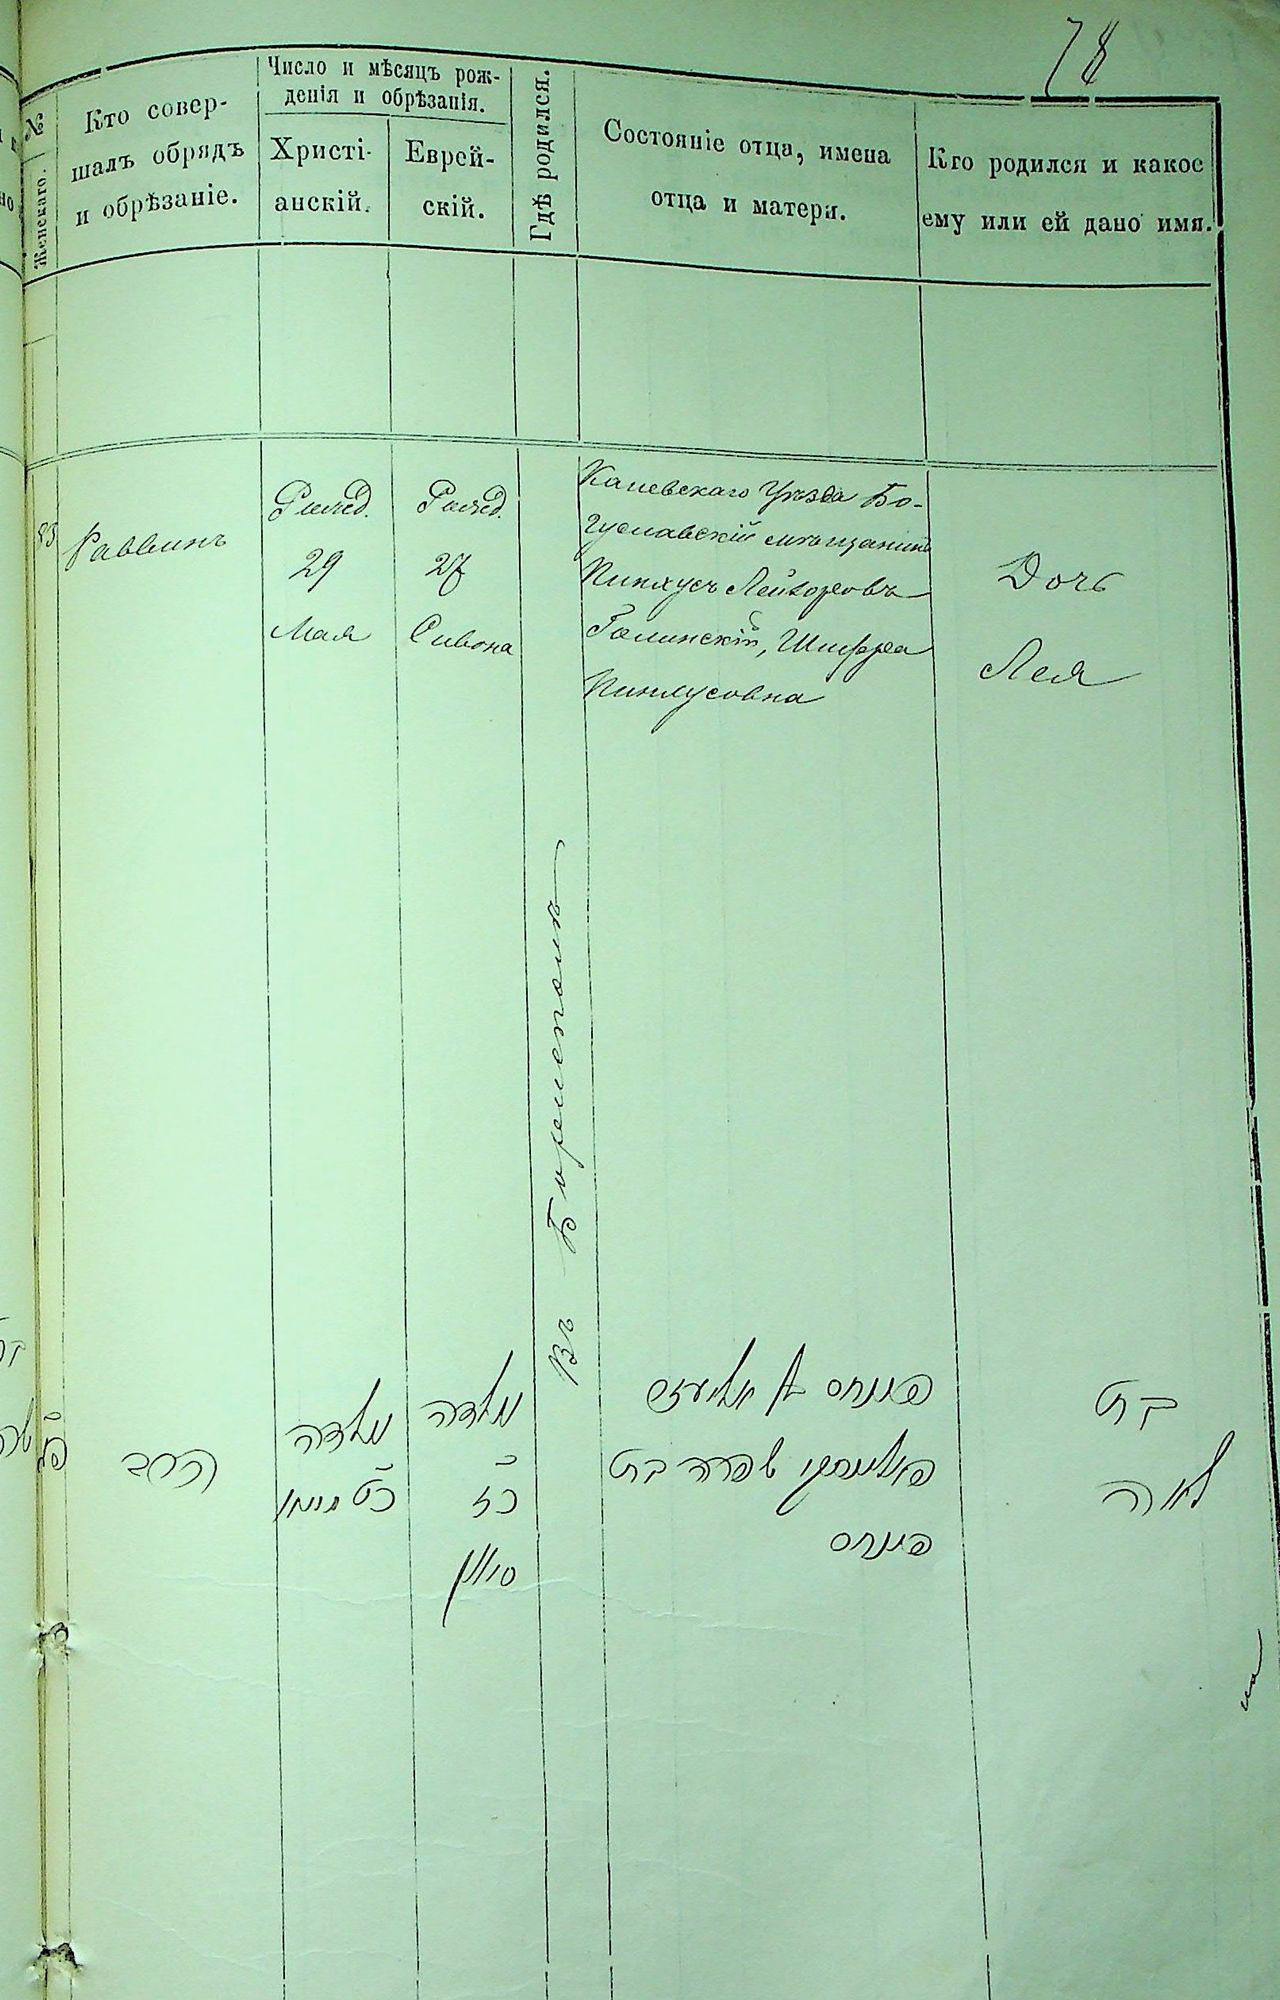 78
№
Женскаго.
Кто совер-
шалъ обрядъ
и обрѣзаніе.
Число и мѣсяцъ рож-
денія и обрѣзанія.
Христі-
анскій.
Еврей-
скій.
Гдѣ родился.
Состояніе отца, имена
отца и матери.
Кто родился и какое
ему или ей дано имя.
83
Раввинъ
Рожд.
29
Мая
Рожд.
27
Сивона
Въ Борисполѣ
Каневскаго Уѣзда Бо-
гуславскій мѣщанинъ
Пинхусъ Лейзоровъ
Шифра
Пинхусовна
Дочь
Лея
פג
הרב
נולדה
כט מיוא
נולדה
כז
סיון
פינחס
שפרה בת
פינחס
בת
לאה